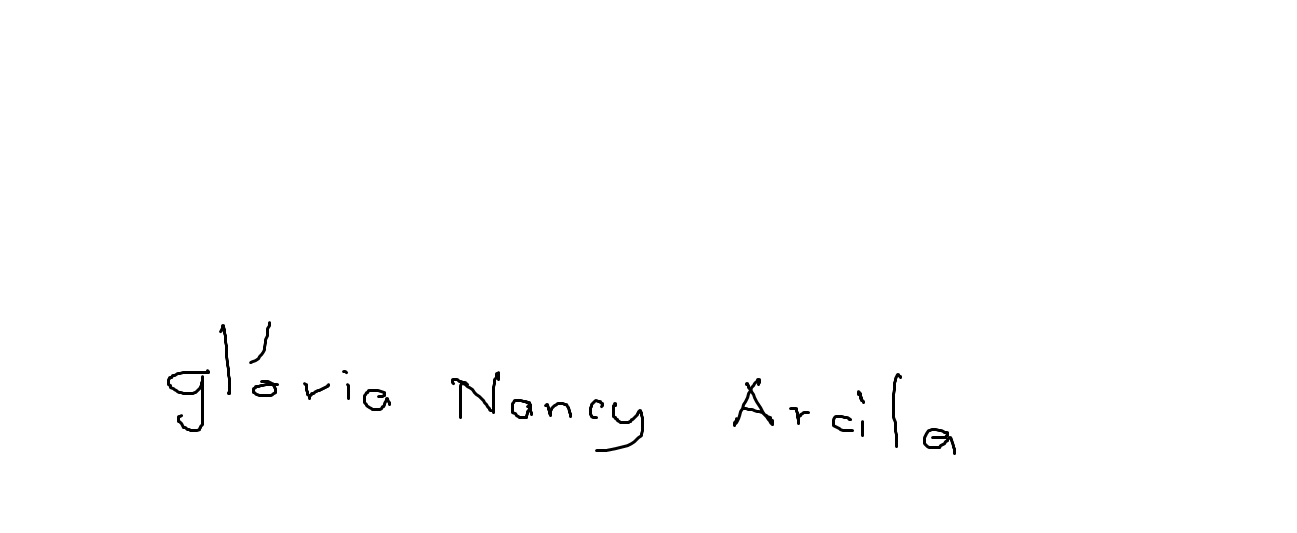 glória Nancy Arcila